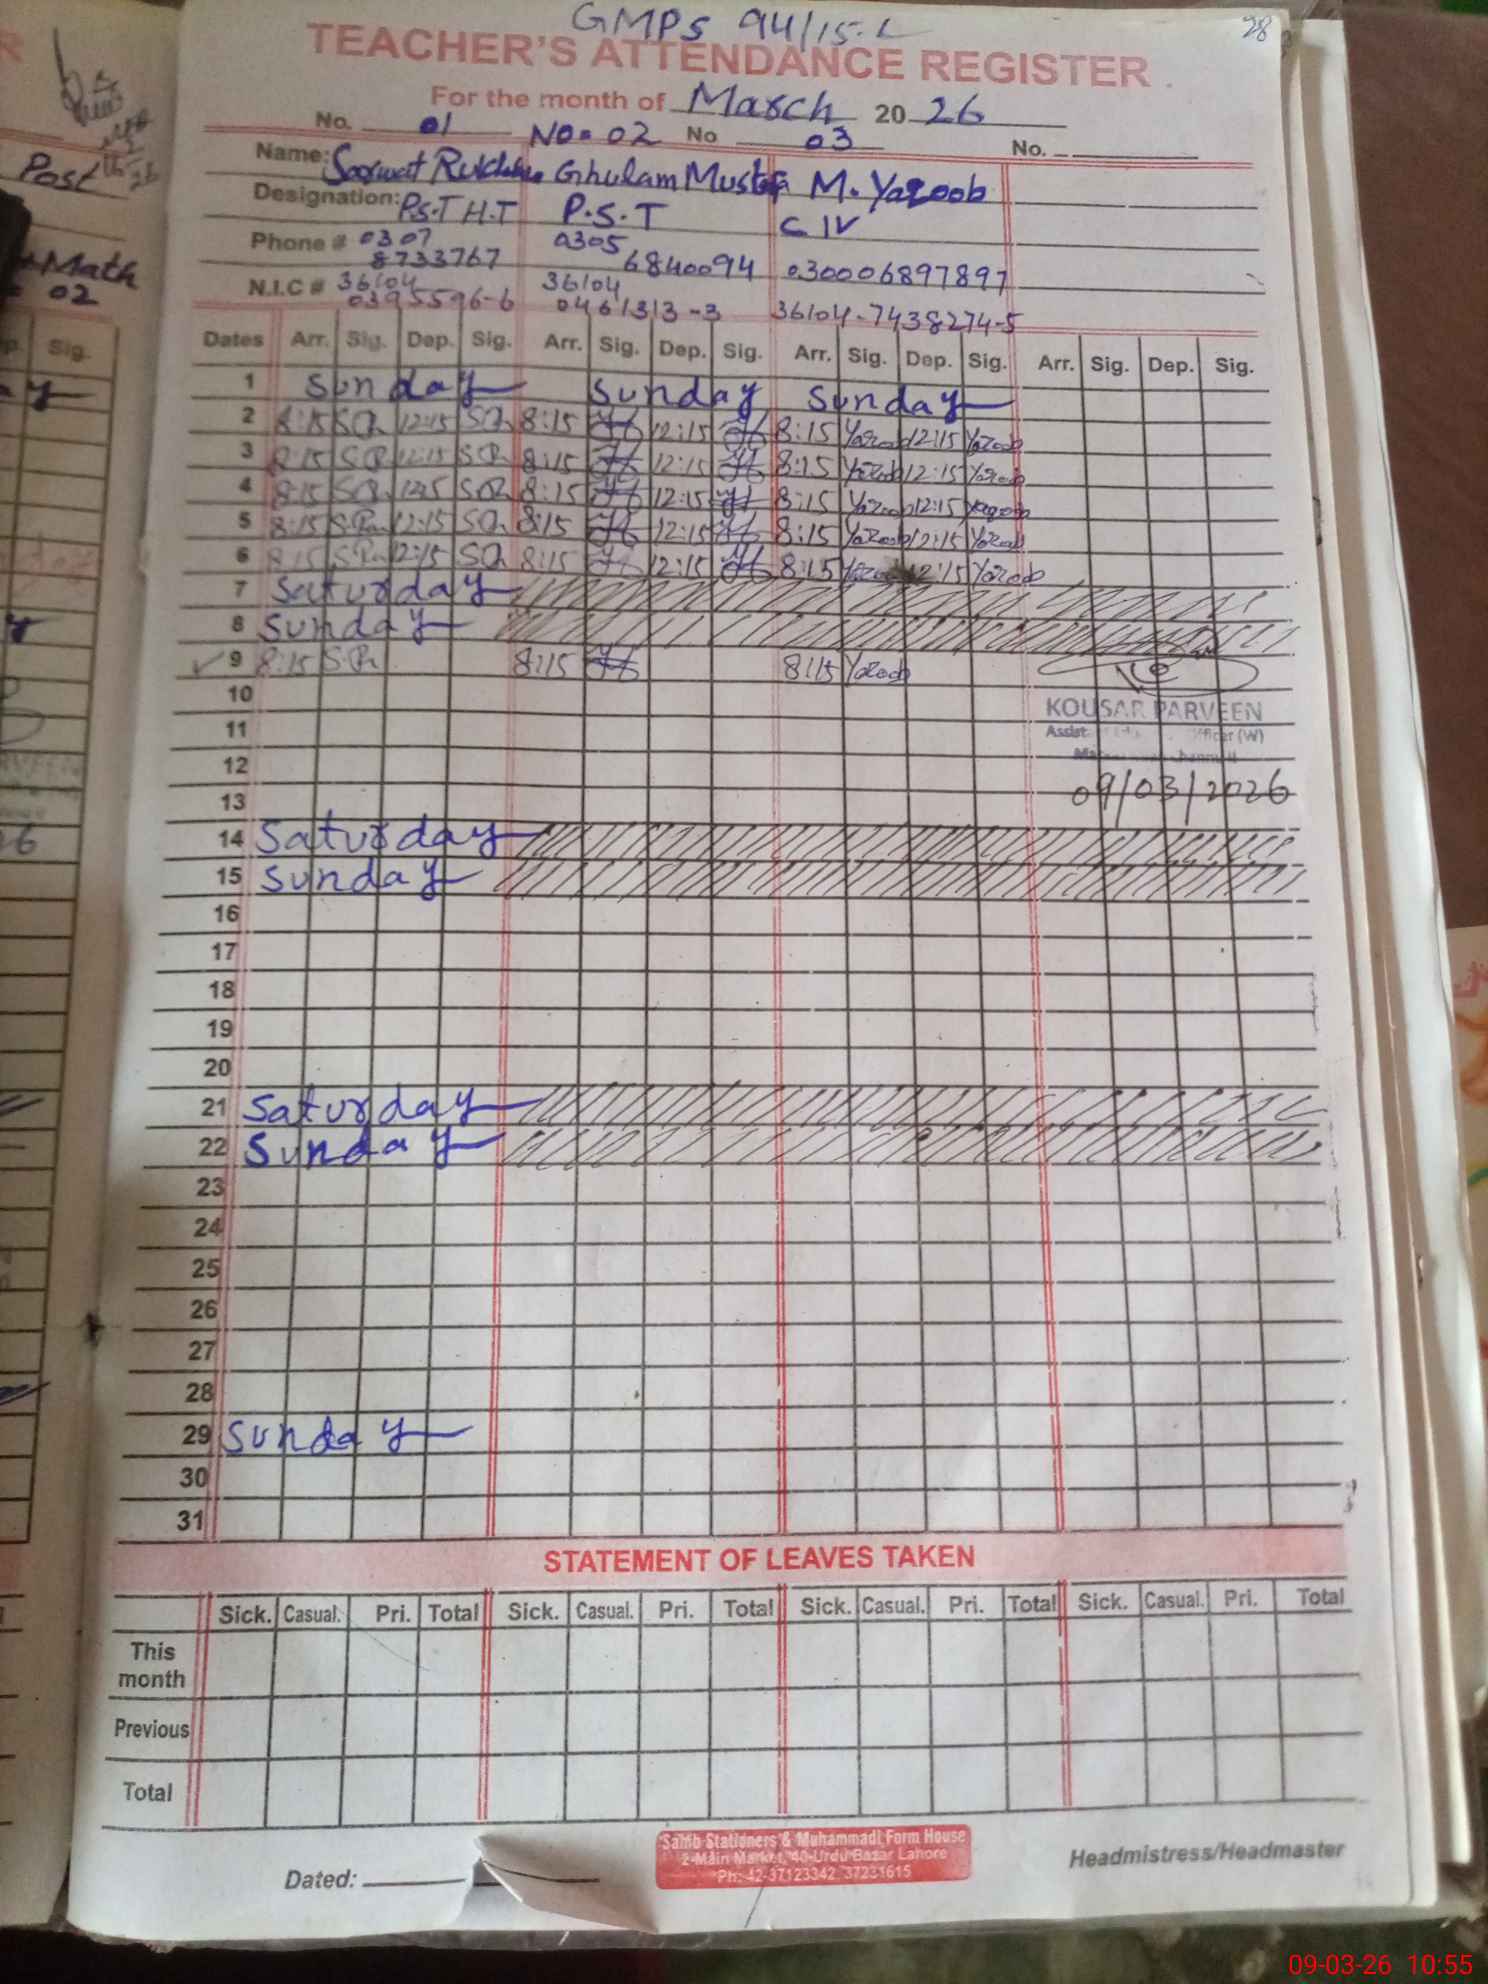 GMPS 94/15-L
28
TEACHER'S ATTENDANCE REGISTER
For the month of March 2026
No. 01 No= 02 No 03 No.
Name: Ghulam Mustafa M. Yaqoob
Designation: P.S.T H.T P.S.T C IV
Phone # 0307 8733767 0305 6840094 03006897897
N.I.C # 36104 0395596-6 36104 0461313-3 36104-7438274-5
Dates Arr. Sig. Dep. Sig. Arr. Sig. Dep. Sig. Arr. Sig. Dep. Sig. Arr. Sig. Dep. Sig.
1 Sunday Sunday Sunday
2 8:15 12:15 8:15 12:15 8:15 Yaqoob 12:15 Yaqoob
3 8:15 12:15 8:15 12:15 8:15 Yaqoob 12:15 Yaqoob
4 8:15 1215 8:15 12:15 8:15 Yaqoob 12:15 Yaqoob
5 8:15 12:15 8:15 12:15 8:15 Yaqoob 12:15 Yaqoob
6 8:15 12:15 8:15 12:15 8:15 Yaqoob 12:15 Yaqoob
7 Saturday
8 Sunday
9 8:15 8:15 8:15 Yaqoob
10
KOUSAR PARVEEN
11
Assist Officer (W)
12
13
09/03/2026
14 Saturday
15 Sunday
16
17
18
19
20
21 Saturday
22 Sunday
23
24
25
26
27
28
29 Sunday
30
31
STATEMENT OF LEAVES TAKEN
Sick. Casual. Pri. Total Sick. Casual. Pri. Total Sick. Casual. Pri. Total Sick. Casual. Pri. Total
This month
Previous
Total
Sahib Stationers & Muhammadi Form House
2-Main Market, 40-Urdu Bazar Lahore
Ph: 42-37123342, 37231615
Dated:
Headmistress/Headmaster
Post
Math
02
Sig.
09-03-26 10:55